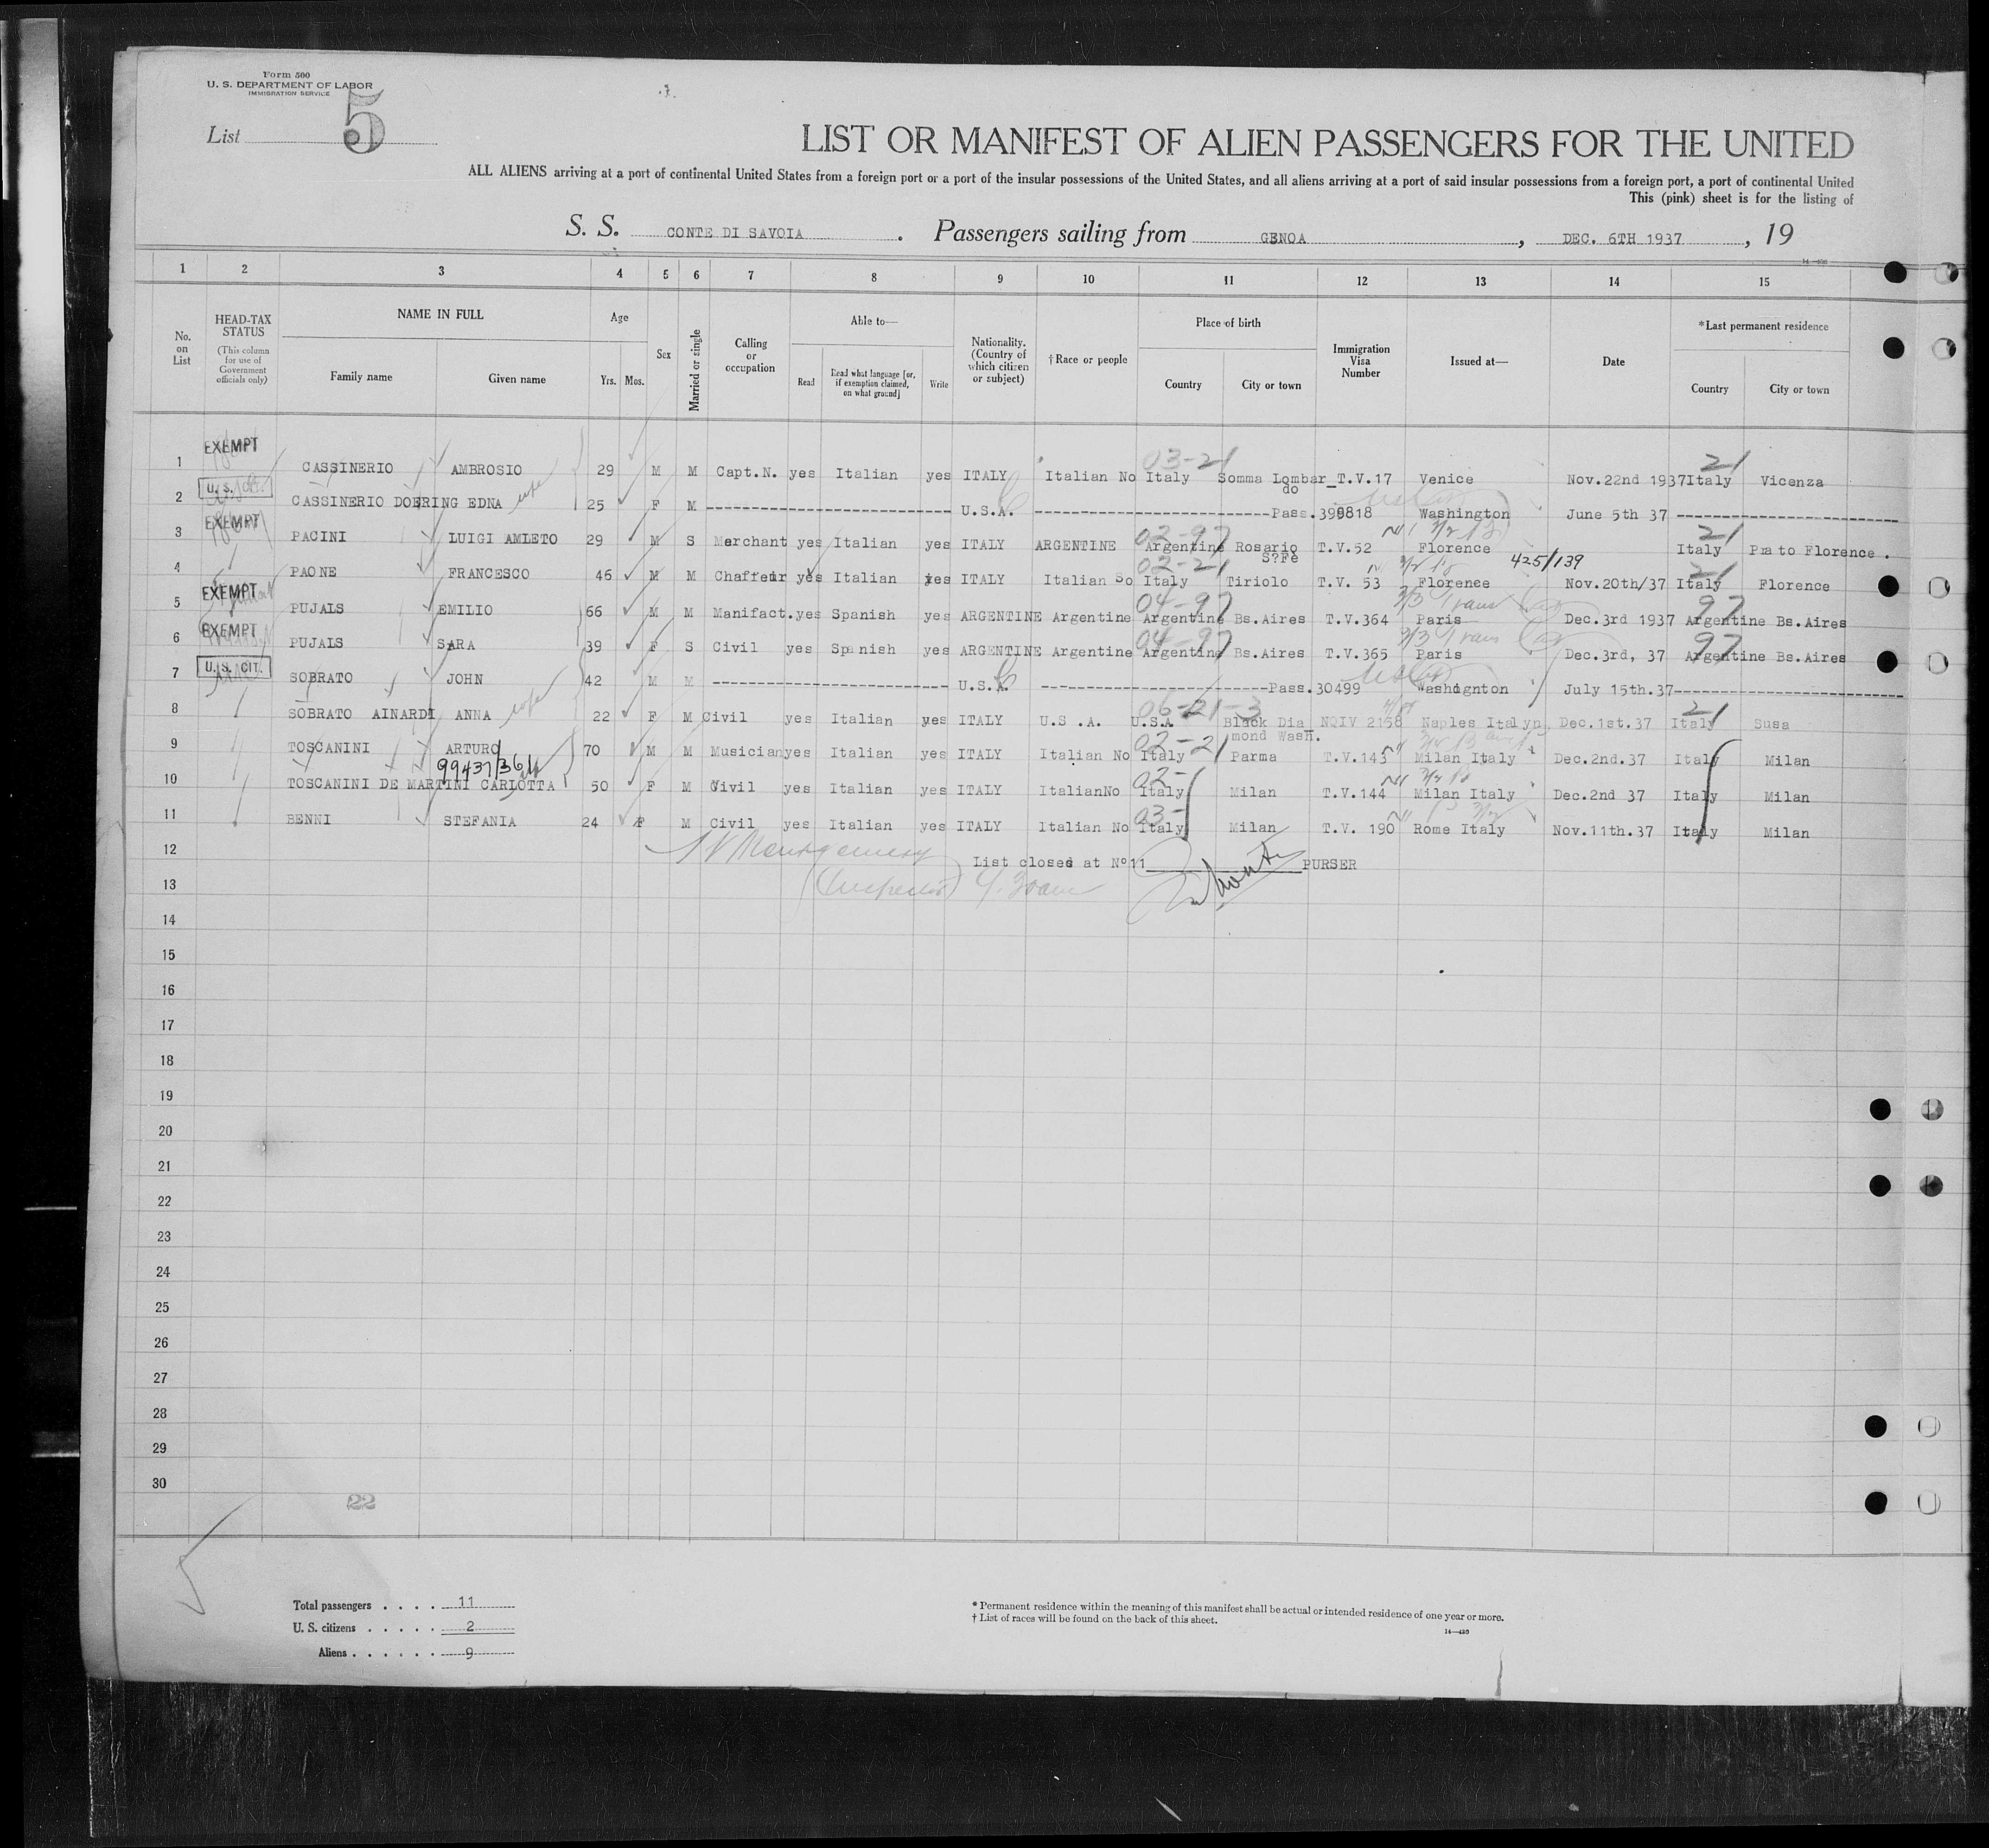 Form 500
U. S. DEPARTMENT OF LABOR
IMMIGRATION SERVICE
List 5
LIST OR MANIFEST OF ALIEN PASSENGERS FOR THE UNITED
ALL ALIENS arriving at a port of continental United States from a foreign port or a port of the insular possessions of the United States, and all aliens arriving at a port of said insular possessions from a foreign port, a port of continental United
This (pink) sheet is for the listing of
S. S. CONTE DI SAVOIA. Passengers sailing from GENOA, DEC. 6TH 1937, 19
14—430
1 2 3 4 5 6 7 8 9 10 11 12 13 14 15
No. on List
HEAD-TAX STATUS (This column for use of Government officials only)
NAME IN FULL
Family name Given name
Age
Yrs. Mos.
Sex
Married or single
Calling or occupation
Able to—
Read Read what language [or, if exemption claimed, on what ground] Write
Nationality. (Country of which citizen or subject)
† Race or people
Place of birth
Country City or town
Immigration Visa Number
Issued at—
Date
*Last permanent residence
Country City or town
EXEMPT 03-21 21
1 CASSINERIO AMBROSIO 29 M M Capt.N. yes Italian yes ITALY Italian No Italy Somma Lombar_ do T.V.17 Venice Nov.22nd 1937 Italy Vicenza
U.S. CIT.
2 CASSINERIO DOERING EDNA wife 25 F M ---------- U.S.A. ---------- Pass.399818 Washington June 5th 37 ----------
EXEMPT 02-97 21
3 PACINI LUIGI AMLETO 29 M S Merchant yes Italian yes ITALY ARGENTINE Argentine Rosario S?Fè T.V.52 Florence Italy Prato Florence .
02-21 425/139 21
4 PAONE FRANCESCO 46 M M Chaffeur yes Italian yes ITALY Italian So Italy Tiriolo T.V. 53 Florence Nov.20th/37 Italy Florence
EXEMPT 04-97 3/3 Trans 97
5 PUJALS EMILIO 66 M M Manifact. yes Spanish yes ARGENTINE Argentine Argentine Bs.Aires T.V.364 Paris Dec.3rd 1937 Argentine Bs.Aires
EXEMPT 04-97 3/3 Trans 97
6 PUJALS SARA 39 F S Civil yes Spanish yes ARGENTINE Argentine Argentine Bs.Aires T.V.365 Paris Dec.3rd, 37 Argentine Bs.Aires
U.S. CIT.
7 SOBRATO JOHN 42 M M ---------- U.S.A. ---------- Pass.30499 Washignton July 15th.37 ----------
06-21-3 21
8 SOBRATO AINARDI ANNA wife 22 F M Civil yes Italian yes ITALY U.S .A. U.S.A Black Dia mond Wash. NQIV 2158 Naples Italy Dec.1st.37 Italy Susa
02-21
9 TOSCANINI ARTURO 70 M M Musician yes Italian yes ITALY Italian No Italy Parma T.V.143 Milan Italy Dec.2nd.37 Italy Milan
99437/36 02-
10 TOSCANINI DE MARTINI CARLOTTA 50 F M Civil yes Italian yes ITALY ItalianNo Italy Milan T.V.144 Milan Italy Dec.2nd 37 Italy Milan
03-
11 BENNI STEFANIA 24 F M Civil yes Italian yes ITALY Italian No Italy Milan T.V. 190 Rome Italy Nov.11th.37 Italy Milan
12 Montgomery List closed at Nº11 PURSER
13 (Inspector)
14
15
16
17
18
19
20
21
22
23
24
25
26
27
28
29
30
22
Total passengers . . . . 11
U. S. citizens . . . . . 2
Aliens . . . . . . 9
* Permanent residence within the meaning of this manifest shall be actual or intended residence of one year or more.
† List of races will be found on the back of this sheet.
14—430